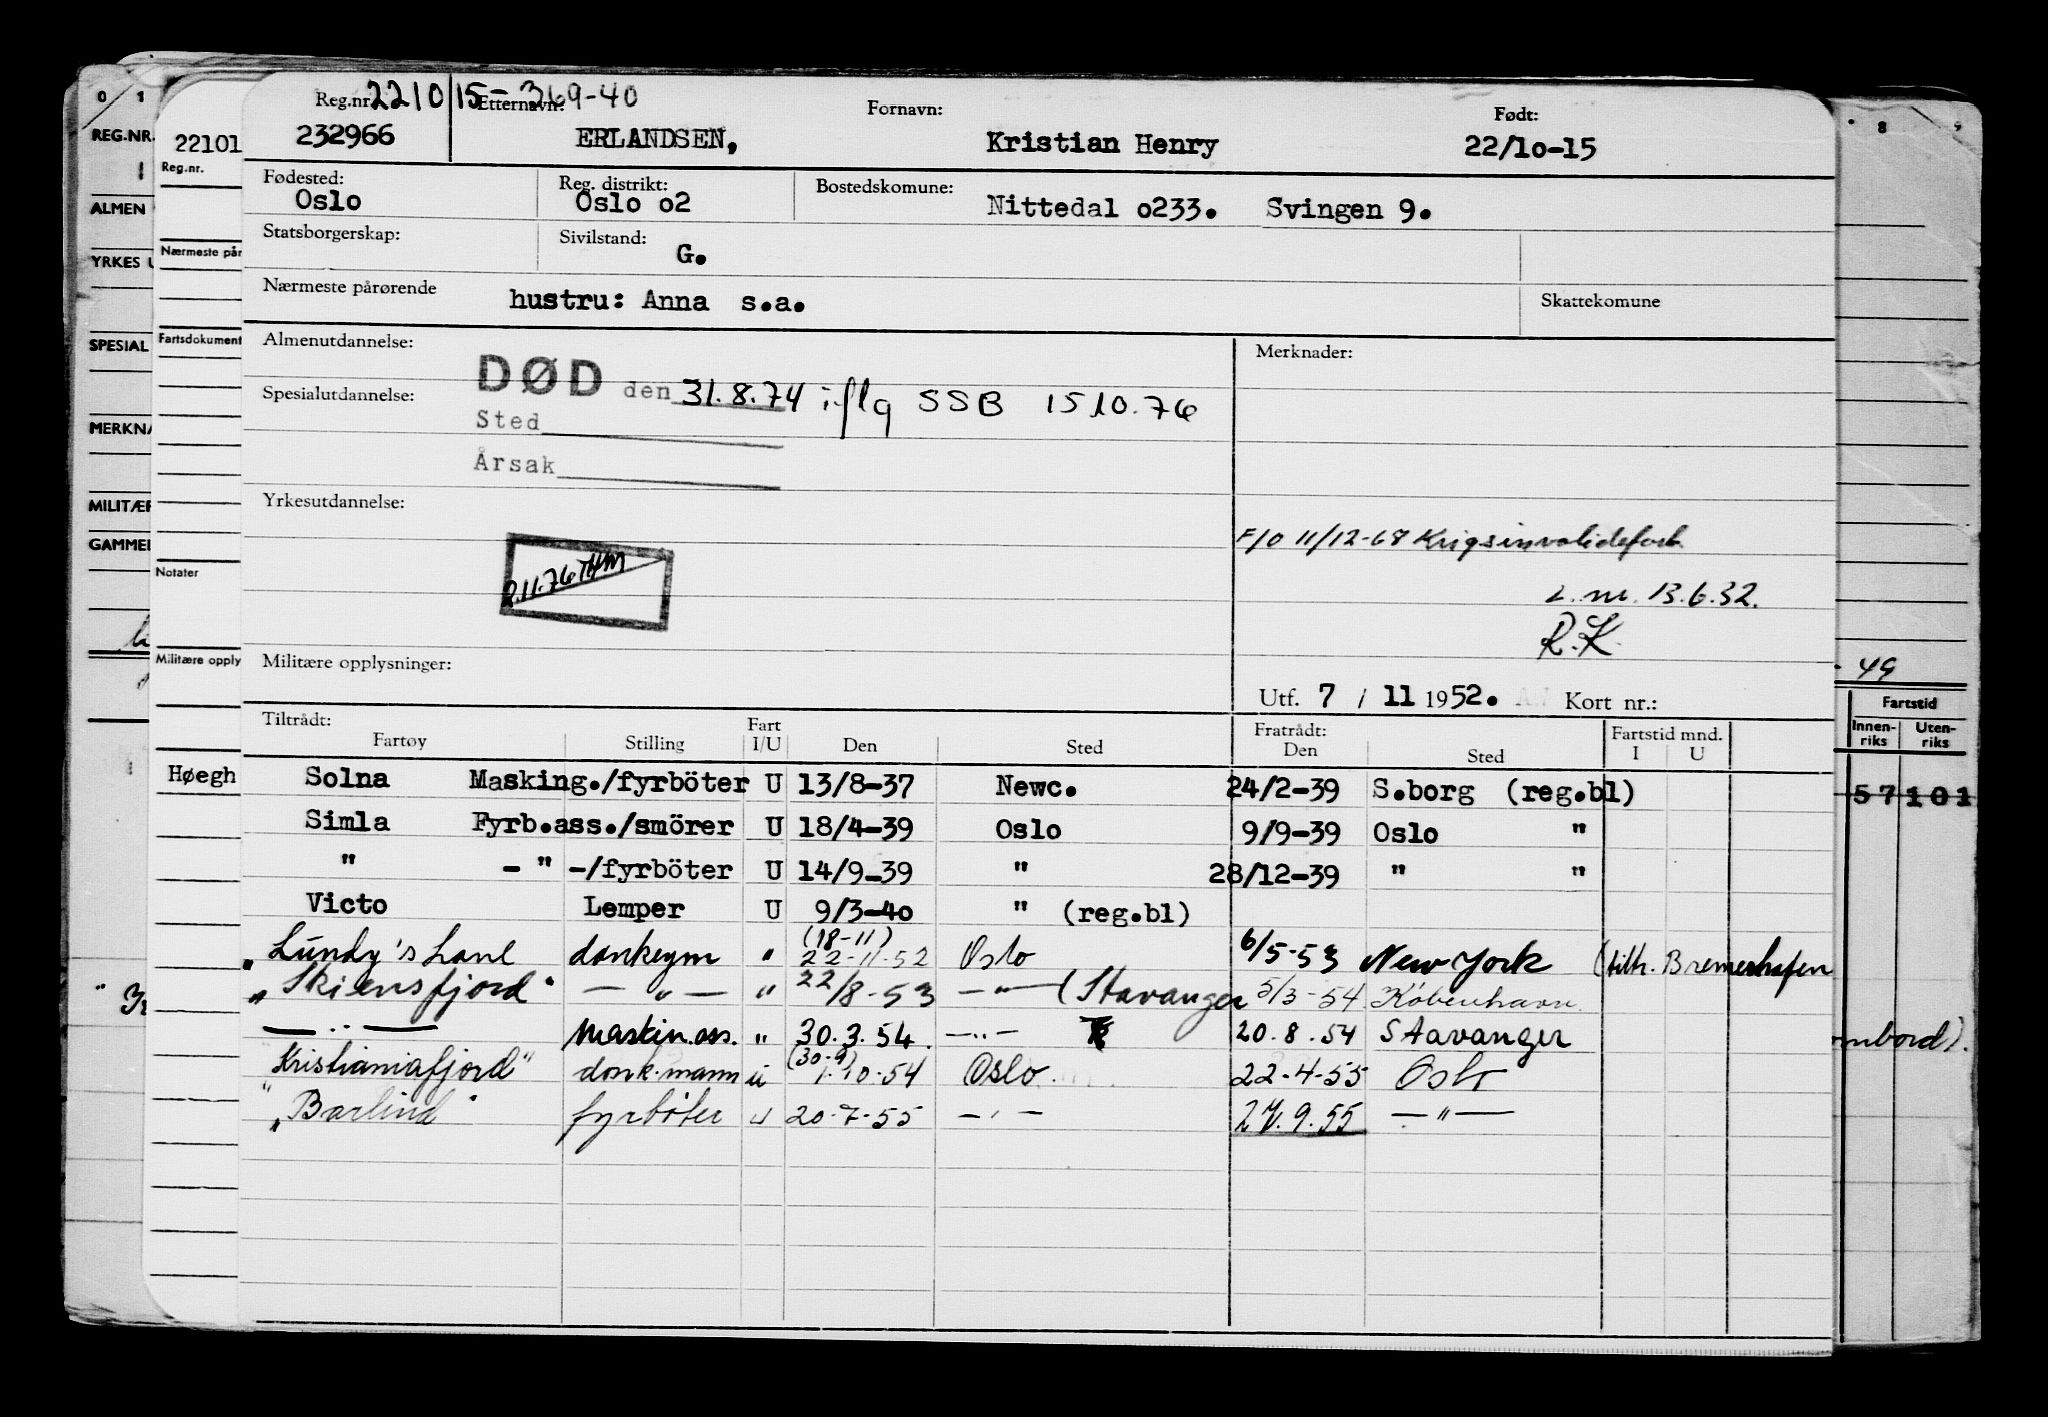 Reg.nr. 221015-369-40 Etternavn: Fornavn: Født:
232966 ERLANDSEN, Kristian Henry 22/10-15
Fødested: Reg. distrikt: Bostedskomune:
Oslo Oslo o2 Nittedal o233. Svingen 9.
Statsborgerskap: Sivilstand: G.
Nærmeste pårørende hustru: Anna s.a. Skattekomune
Almenutdannelse: Merknader:
DØD den 31.8.74 iflg SSB 15 10.76
Spesialutdannelse:
Sted
Årsak
Yrkesutdannelse:
F/O 11/12-68 Krigsinvalideforb.
2.11.76 THM
L.nr. 13.6.32.
R.K.
Militære opplysninger:
Utf. 7 / 11 1952. Kort nr.:
Tiltrådt: Fart Fratrådt: Fartstid mnd.
Fartøy Stilling I/U Den Sted Den Sted I U
Solna Masking./fyrböter U 13/8-37 Newc. 24/2-39 S.borg (reg.bl)
Simla Fyrb.ass./smörer U 18/4-39 Oslo 9/9-39 Oslo "
" - " -/fyrböter U 14/9-39 " 28/12-39 " "
Victo Lemper U 9/3-40 " (reg.bl)
(18-11)
"Lundy's Lane donkeym " 22-11-52 Oslo 6/5-53 New York (tiltr. Bremerhafen
"Skiensfjord" — " — " 22/8-53 — " — (Stavanger 5/3-54 København
— .. — Maskin.ass. " 30.3.54. — .. — 20.8.54 Stavanger
(30-9)
Kristianiafjord" donk.mann u 1.10-54 Oslo. 22-4-55 Oslo
"Barlind" fyrbøter u 20-7-55 — " — 27.9.55 — " —
0 1
REG.NR.
ALMEN
YRKES U
SPESIAL
MERKNA
MILITÆR
GAMMEL
22101
Reg.nr.
Nærmeste pår
Fartsdokument
Notater
Militære opply
Høegh
8 9
49
Fartstid
Innen-riks Uten-riks
57 101
ombord).